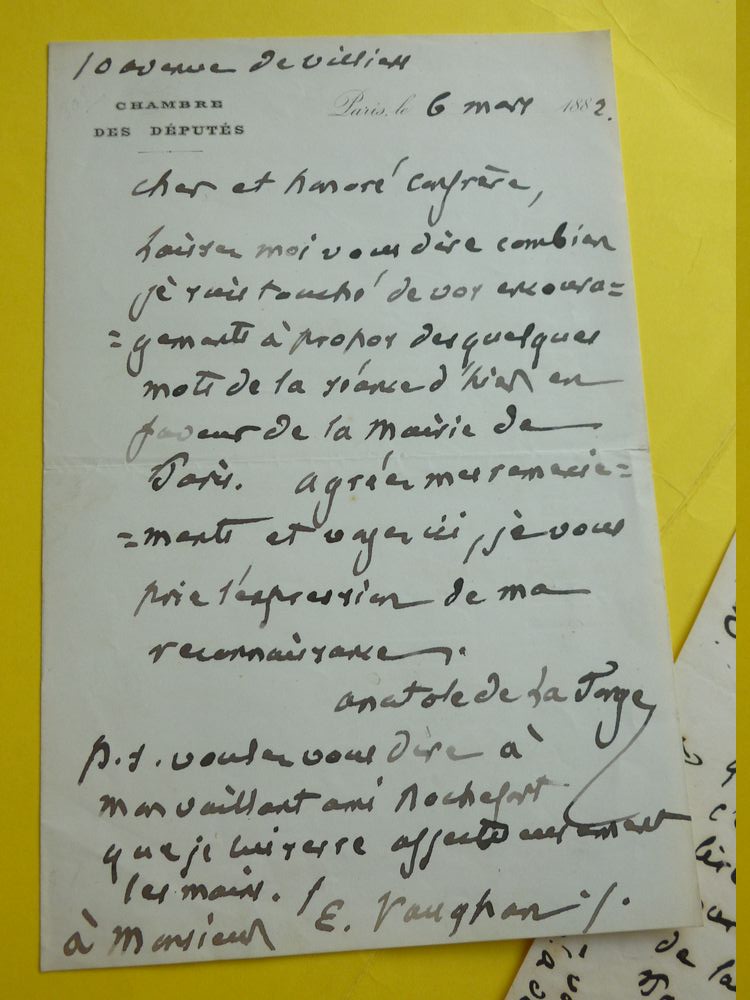 10 avenue de villiers
CHAMBRE
DES DÉPUTÉS
Paris, le 6 mars 1882.
cher et honoré confrère,
Laissez moi vous dire combien
je suis touché de vos encoura=
=gements à propos des quelques
mots de la séance d'hier en
faveur de la Mairie de
Paris. Agréez mes remercie=
=ments et voyez ici, je vous
prie l'expression de ma
reconnaissance.
anatole de La Forge
p.s. voulez vous dire à
mon vaillant ami Rochefort
que je lui serre affectueusement
les mains. /
à Monsieur E. Vaughan ./.
de la